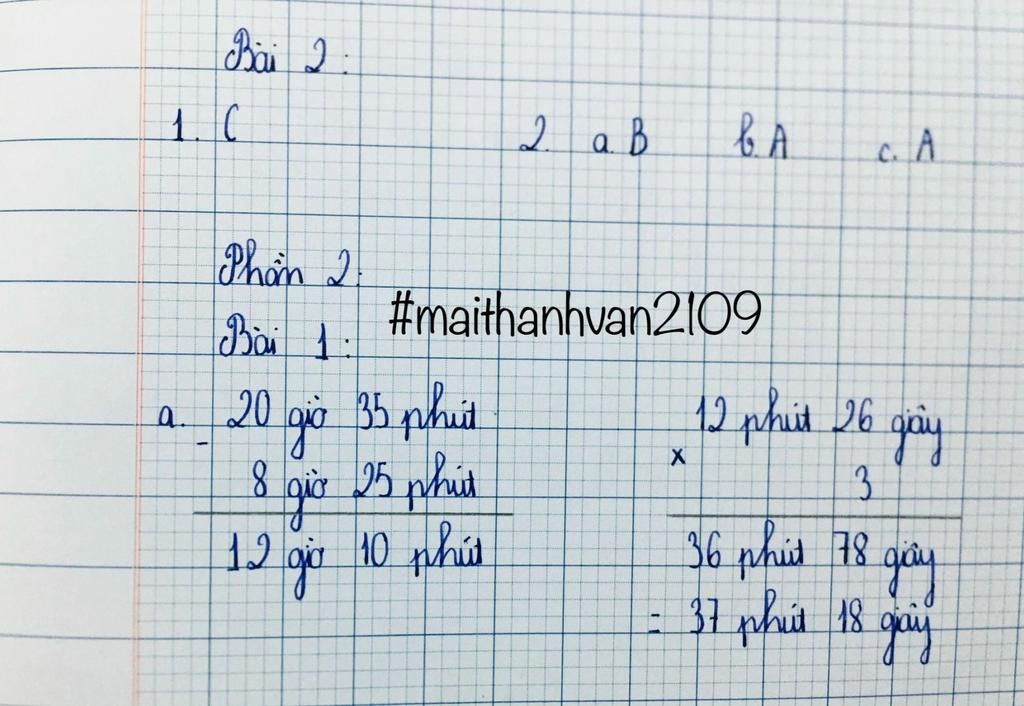 Bài 2:
1. C 2. a. B b. A c. A
Phần 2:
#maithanhvan2109
Bài 1:
a. 20 giờ 35 phút 12 phút 26 giây
- x
8 giờ 25 phút 3
12 giờ 10 phút 36 phút 78 giây
= 37 phút 18 giây